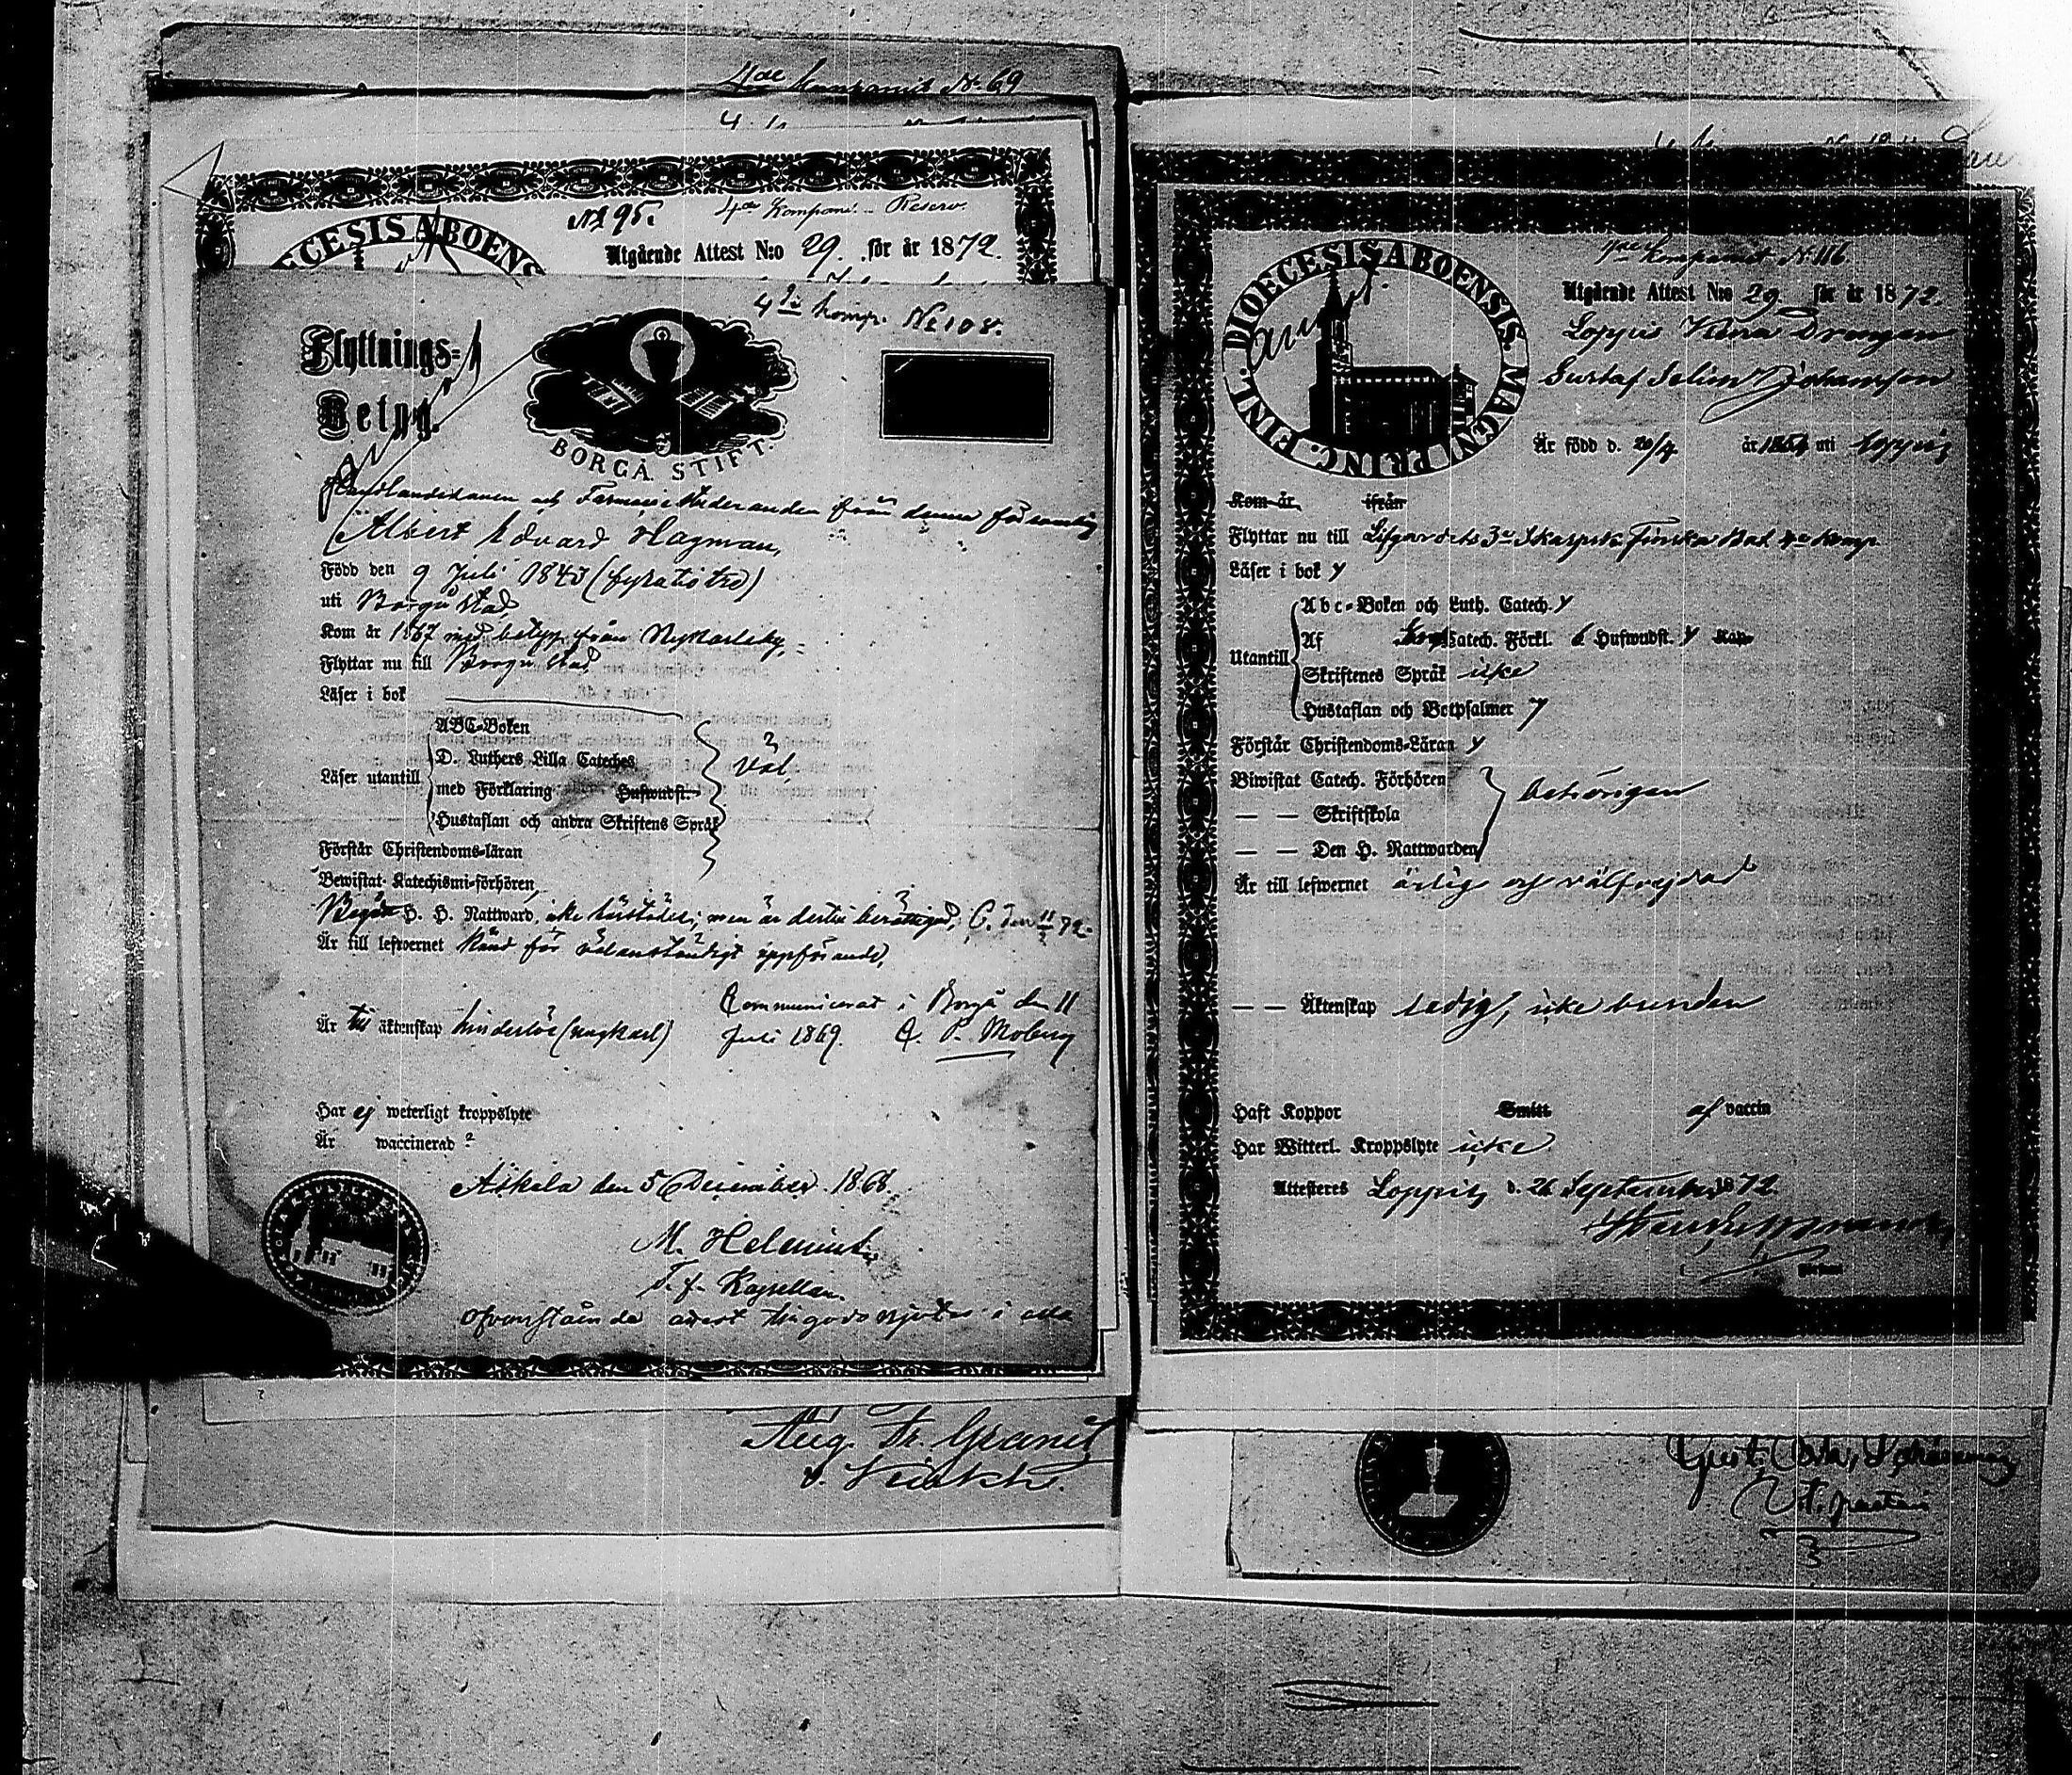 4de Kompaniet N. 69
N 95.
4de Kompani Reserv.
DIOECESIS ABOENS
Utgående Attest N:o 29. för år 1872.
4de Komp. No 108.
Flyttnings=
Betyg.
BORGÅ STIFT.
och Farmacie Studeranden från denna församling
Albert Edvard Hagman,
Född den 9 Juli 1843 (fyratiotre)
uti Borgå stad,
Kom år 1867 med betyg från Nykarleby,
Flyttar nu till Borgå stad
Läser i bok
Läser utantill
ABC-Boken
D. Luthers Lilla Cateches
med Förklaring Hufwudst.
Hustaflan och andra Skriftens Språk
Väl,
Förstår Christendoms-läran
Bewistat Katechismi-förhören,
Begått H. H. Nattward, icke härstädes; men är dertill berättigad, C. den 11/2 72.
Är till lefwernet känd för välanständigt uppförande,
Communicerat i Borgå den 11
Är till äktenskap hinderlös (ungkarl) Juli 1869. C. P. Moberg
Har ej weterligt kroppslyte
Är waccinerad
Askola den 5 December 1868
M. Helenius
T. f. Kapellan.
Ofvanstående attest tillgodo njutes i alla
Aug. Fr. Granit
DIOECESIS ABOENSIS. MAGNI PRINC. FINL.
4de Kompaniet N. 116
Utgående Attest N:o 29. för år 1872.
Loppis
Gustaf Selim Johansson
Är född d. 20/4 år 1854 uti Loppis
Kom år ifrån
Flyttar nu till Lifgardets 3e Skarpsk. Finska Bat. 4de Komp.
Läser i bok y
Utantill
Abc-Boken och Luth. Catech. y
Af Catech. Förkl. 6 Hufwudst. y Kap.
Skriftenes Språk icke
Hustaflan och Botpsalmer y
Förstår Christendoms-Läran y
Biwistat Catech. Förhören
— — Skriftskola
— — Den H. Nattwarden
behörigen
Är till lefwernet ärlig och välfrejdad
— — Äktenskap ledig, icke bunden
Haft Koppor Smitt af vaccin
Har Witterl. Kroppslyte icke
Attesteres Loppis d. 26 September 1872.